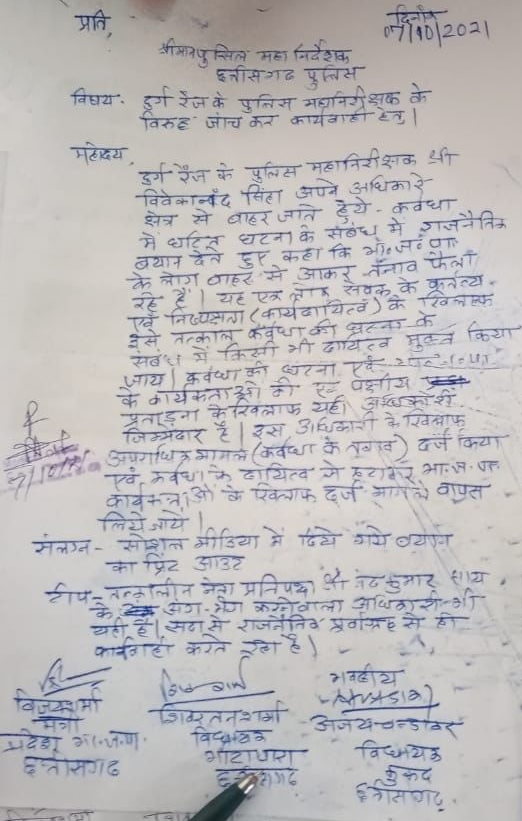 प्रति,
दिनांक
07/10/2021
श्रीमान पुलिस महा निर्देशक
छत्तीसगढ पुलिस
विषय- दुर्ग रेंज के पुलिस महानिरीक्षक के
विरुद्ध जांच कर कार्यवाही हेतु।
महोदय,
दुर्ग रेंज के पुलिस महानिरीक्षक श्री
विवेकानंद सिंहा अपने अधिकार
क्षेत्र से बाहर जाते हुये - कवर्धा
में घटित घटना के संबंध में राजनैतिक
बयान देते हुए कहा कि भा.ज.पा.
के लोग बाहर से आकर तनाव फैला
रहे हैं। यह एक लोक सेवक के कर्तव्य
एवं निष्पक्षता (कार्यदायित्व) के खिलाफ
इसे तत्काल कवर्धा की घटना के
संबंध में किसी भी दायित्व मुक्त किया
जाय। कवर्धा की घटना एवं भा.ज.पा.
के कार्यकर्ताओं की एक पक्षीय
प्रताड़ना के खिलाफ यही अधिकारी
जिम्मेदार है। इस अधिकारी के खिलाफ
अपराधिक मामले (कवर्धा के तनाव) दर्ज किया
एवं कवर्धा के दायित्व से हटाकर भा.ज.पा.
कार्यकर्ताओं के खिलाफ दर्ज मामले वापस
लिये जाये।
संलग्न - सोशल मीडिया में दिये गये बयान
का प्रिंट आउट
टीप- तत्कालीन नेता प्रतिपक्ष श्री नंदकुमार साय
के अंग-भंग करनेवाला अधिकारी भी
यही है। सदा से राजनैतिक प्रवाग्रह से ही
कार्यवाही करते रहा है।
भवदीय
विजय शर्मा
मंत्री
प्रदेश भा.ज.पा.
छत्तीसगढ
शिवरतन शर्मा
विधायक
भाटापारा
छत्तीसगढ
अजय चन्द्राकर
विधायक
कुरूद
छत्तीसगढ.